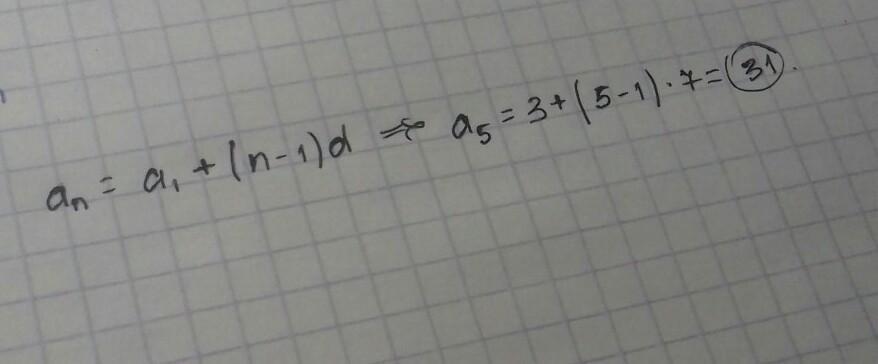 aₙ = a₁ + (n-1)d ⇒ a₅ = 3 + (5-1)·7 = 31.